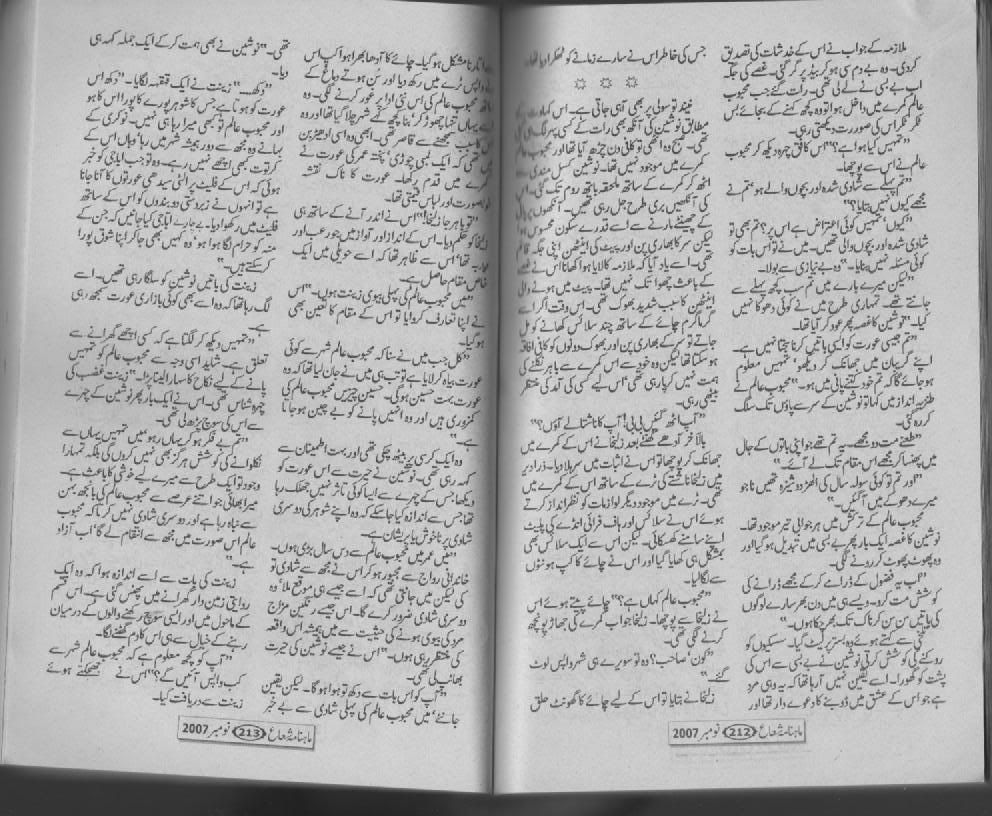 ملازمہ کے جواب نے اس کے خدشات کی تصدیق
کردی۔ وہ بے دم سی ہو کر بیڈ پر گر گئی۔ غصے کی جگہ
اب بے بسی نے لے لی تھی۔ رات گئے جب محبوب
عالم کمرے میں داخل ہوا تو وہ کچھ کہنے کے بجائے بس
ٹکر ٹکر اس کی صورت دیکھتی رہی۔
"تمہیں کیا ہوا ہے؟" اس کا فق چہرہ دیکھ کر محبوب
عالم نے اس سے پوچھا۔
"تم پہلے سے شادی شدہ اور بچوں والے ہو، تم نے
مجھے کیوں نہیں بتایا؟"
"کیوں، تمہیں کوئی اعتراض ہے اس پر؟ تم بھی تو
شادی شدہ اور بچوں والی تھیں۔ میں نے تو اس بات کو
کوئی مسئلہ نہیں بنایا۔" وہ بے نیازی سے بولا۔
"لیکن میرے بارے میں تم سب کچھ پہلے سے
جانتے تھے۔ تمہاری طرح میں نے کوئی دھوکا نہیں
کیا۔" نوشین کا غصہ پھر عود کر آیا تھا۔
"تم جیسی عورت کو ایسی باتیں کرنا جچتا نہیں ہے۔
اپنے گریبان میں جھانک کر دیکھو، تمہیں معلوم
ہو جائے گا کہ تم خود کتنے پانی میں ہو۔" محبوب عالم کے
طنزیہ انداز میں کہا تو نوشین کے سر سے پاؤں تک سلگ
کر رہ گئی۔
"طعنے مت دو مجھے۔ یہ تم تھے جو اپنی باتوں کے جال
میں پھنسا کر مجھے اس مقام تک لے آئے۔"
"اور تم تو کوئی سولہ سال کی الھڑ دوشیزہ تھیں نا جو
میرے دھوکے میں آ گئیں۔"
محبوب عالم کے ترکش میں ہر جوابی تیر موجود تھا۔
نوشین کا غصہ ایک بار پھر بے بسی میں تبدیل ہو گیا اور
وہ پھوٹ پھوٹ کر رونے لگی۔
"اب یہ فضول کے ڈرامے کر کے مجھے ڈرانے کی
کوشش مت کرو۔ ویسے ہی میں دن بھر سارے لوگوں
کی باتیں سن سن کر ناک تک بھر چکا ہوں۔"
تلخی سے کہتے ہوئے وہ بستر پر لیٹ گیا۔ سسکیوں کو
روکنے کی کوشش کرتی نوشین نے بے بسی سے اس کی
پشت کو گھورا۔ اسے یقین نہیں آ رہا تھا کہ یہ وہی مرد
ہے جو اس کے عشق میں ڈوبنے کا دعوے دار تھا اور
جس کی خاطر اس نے سارے زمانے کو ٹھکرا دیا تھا۔
☼ ☼ ☼
نیند تو سولی پر بھی آ ہی جاتی ہے۔ اس کہاوت کے
مطابق نوشین کی آنکھ بھی رات کے کسی پہر لگ ہی گئی
تھی۔ صبح وہ اٹھی تو کافی دن چڑھ آیا تھا اور محبوب عالم
کمرے میں موجود نہیں تھا۔ نوشین کسل مندی سے
اٹھ کر کمرے کے ساتھ ملحقہ باتھ روم تک گئی۔ اس
کی آنکھیں بری طرح جل رہی تھیں۔ آنکھوں پر پانی
کے چھینٹے مارنے سے اسے قدرے سکون محسوس ہوا
لیکن سر کا بھاری پن اور پیٹ کی اینٹھن اپنی جگہ قائم
تھی۔ اسے یاد آیا کہ ملازمہ کا لایا ہوا کھانا اس نے غصے
کے باعث چھوا تک نہیں تھا۔ پیٹ میں ہونے والی
اینٹھن کا سبب شدید بھوک تھی۔ اس وقت اگر اسے
گرما گرم چائے کے ساتھ چند سلائس کھانے کو مل
جاتے تو سر کے بھاری پن اور بھوک دونوں کو کافی افاقہ
ہو سکتا تھا لیکن وہ خود سے اس کمرے سے باہر نکلنے کی
ہمت نہیں کر پا رہی تھی اس لیے کسی کی آمد کی منتظر
بیٹھی رہی۔
"آپ اٹھ گئیں بی بی! آپ کا ناشتا لے آؤں؟"
بالآخر آدھے گھنٹے بعد زلیخا نے اس کے کمرے میں
جھانک کر پوچھا تو اس نے اثبات میں سر ہلا دیا۔ ذرا دیر
میں زلیخا ناشتے کی ٹرے کے ساتھ اس کے کمرے میں
تھی۔ ٹرے میں موجود دیگر لوازمات کو نظر انداز کرتے
ہوئے اس نے سلائس اور ہاف فرائی انڈے کی پلیٹ
اپنے سامنے کھسکائی۔ لیکن اس سے ایک سلائس بھی
بمشکل ہی کھایا گیا اور اس نے چائے کا کپ ہونٹوں
سے لگا لیا۔
"محبوب عالم کہاں ہے؟" چائے پیتے ہوئے اس
نے زلیخا سے پوچھا۔ زلیخا جو اب کمرے کی جھاڑ پونچھ
کرنے لگی تھی۔
"کون، صاحب؟ وہ تو سویرے ہی شہر واپس لوٹ
گئے۔"
زلیخا نے بتایا تو اس کے لیے چائے کا گھونٹ حلق
ماہنامہ شعاع 212 نومبر 2007
اتارنا مشکل ہو گیا۔ چائے کا آدھا بھرا ہوا کپ اس
واپس ٹرے میں رکھ دیا اور سن ہوتے دماغ کے
ساتھ محبوب عالم کی اس نئی ادا پر غور کرنے لگی۔ وہ
اسے یہاں تنہا چھوڑ کر، بتا کچھ کے شہر چلا گیا تھا اور وہ
اس کا سبب سمجھنے سے قاصر تھی۔ ابھی وہ اسی ادھیڑبن
میں تھی کہ ایک لمبی چوڑی، پختہ عمر کی عورت نے
کمرے میں قدم رکھا۔ عورت کا ناک نقشہ
خوبصورت اور لباس قیمتی تھا۔
"تو باہر جا زلیخا!" اس نے اندر آنے کے ساتھ ہی
زلیخا کو حکم دیا۔ اس کے انداز اور آواز میں جو رعب اور
تھا، اس سے ظاہر تھا کہ اسے حویلی میں ایک
خاص مقام حاصل ہے۔
"میں محبوب عالم کی پہلی بیوی زینت ہوں۔" اس
نے اپنا تعارف کروایا تو اس کے مقام کا تعین بھی
ہو گیا۔
"کل جب میں نے سنا کہ محبوب عالم شہر سے کوئی
عورت بیاہ کر لایا ہے تو تب ہی میں نے جان لیا تھا کہ وہ
عورت بہت حسین ہو گی۔ حسین چیزیں محبوب عالم کی
کمزوری ہیں اور وہ انہیں پانے کو بے چین ہو جاتا
ہے۔"
وہ ایک کرسی پر بیٹھ چکی تھی اور بہت اطمینان سے
کہہ رہی تھی۔ نوشین نے حیرت سے اس عورت کو
دیکھا جس کے چہرے سے ایسا کوئی تاثر نہیں جھلک رہا
تھا جس سے اندازہ کیا جا سکے کہ وہ اپنے شوہر کی دوسری
شادی پر ناخوش یا پریشان ہے۔
"میں عمر میں محبوب عالم سے دس سال بڑی ہوں۔
خاندانی رواج سے مجبور ہو کر اس نے مجھ سے شادی تو
کی لیکن میں جانتی تھی کہ اسے جیسے ہی موقع ملا، وہ
دوسری شادی ضرور کرے گا۔ اس جیسے رنگین مزاج
مرد کی بیوی ہونے کی حیثیت سے میں ہمیشہ اس واقعہ
کی منتظر رہی ہوں۔" اس نے جیسے نوشین کی حیرت
بھانپ لی تھی۔
"آپ کو اس بات سے دکھ تو ہوا ہو گا۔ لیکن یقین
جانئے، میں محبوب عالم کی پہلی شادی سے بے خبر
تھی۔" نوشین نے بھی ہمت کر کے ایک جملہ کہہ ہی
دیا۔
"دکھ۔۔۔" زینت نے ایک قہقہہ لگایا۔ "دکھ اس
عورت کو ہوتا ہے جس کا شوہر پورے کا پورا اس کا ہو
اور محبوب عالم تو کبھی میرا رہا ہی نہیں۔ نوکری کے
بہانے وہ مجھ سے دور ہمیشہ شہر میں رہا، وہاں اس کے
کرتوت کبھی اچھے نہیں رہے۔ وہ تو جب اباجی کو خبر
ہوئی کہ اس کے فلیٹ پر الٹی سیدھی عورتوں کا آنا جانا
ہے تو انہوں نے زبردستی دو بندوں کو اس کے ساتھ
فلیٹ میں رکھوا دیا۔ بے چارے اباجی کیا جانیں کہ جن کے
منہ کو حرام لگا ہوا ہو، وہ کہیں بھی جا کر اپنا شوق پورا
کر سکتے ہیں۔"
زینت کی باتیں نوشین کو سلگا رہی تھیں۔ اسے
لگ رہا تھا کہ وہ اسے بھی کوئی بازاری عورت سمجھ رہی
ہے۔
"تمہیں دیکھ کر لگتا ہے کہ کسی اچھے گھرانے سے
تعلق ہے۔ شاید اسی وجہ سے محبوب عالم کو تمہیں
پانے کے لیے نکاح کا سہارا لینا پڑا۔" زینت غضب کی
چہرہ شناس تھی۔ اس نے ایک بار پھر نوشین کے چہرے
سے اس کی سوچ پڑھ لی تھی۔
"تم بے فکر ہو کر یہاں رہو، میں تمہیں یہاں سے
نکلوانے کی کوشش ہرگز بھی نہیں کروں گی بلکہ تمہارا
وجود تو ایک طرح سے میرے لیے خوشی کا باعث ہے۔
میرا بھائی جو اتنے عرصے سے محبوب عالم کی بانجھ بہن
سے نباہ رہا ہے اور دوسری شادی نہیں کرتا کہ محبوب
عالم اس صورت میں مجھ سے انتقام لے گا، اب آزاد
ہے۔"
زینت کی بات سے اسے اندازہ ہوا کہ وہ ایک
روایتی زمین دار گھرانے میں پھنس گئی ہے۔ اس قسم
کے ماحول میں اور ایسی سوچ رکھنے والوں کے درمیان
رہنے کے خیال سے ہی اس کا دم گھٹنے لگا۔
"آپ کو کچھ معلوم ہے کہ محبوب عالم شہر سے
کب واپس آئیں گے؟" اس نے جھجکتے ہوئے
زینت سے دریافت کیا۔
ماہنامہ شعاع 213 نومبر 2007